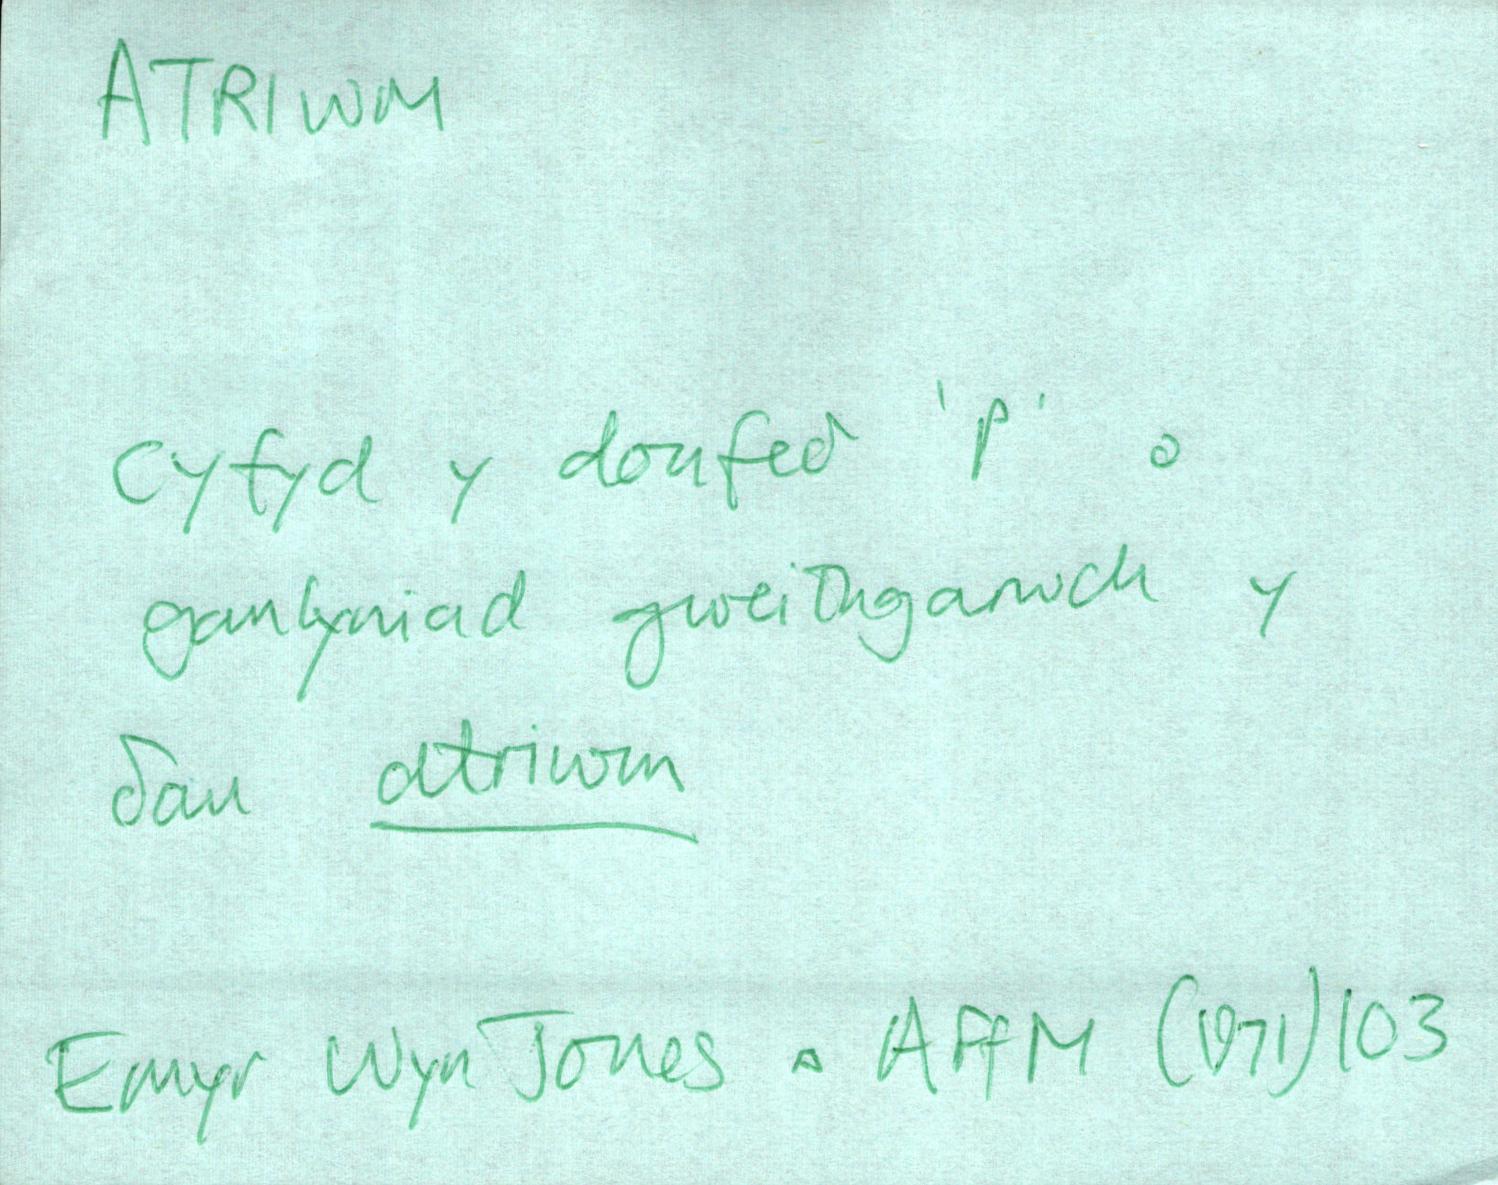 ATRIWM
Cyfyd y donfeð 'P' o
ganlyniad gweithgarwch y
ðau atriwm
Emyr Wyn Jones . AFfM (1971) 103